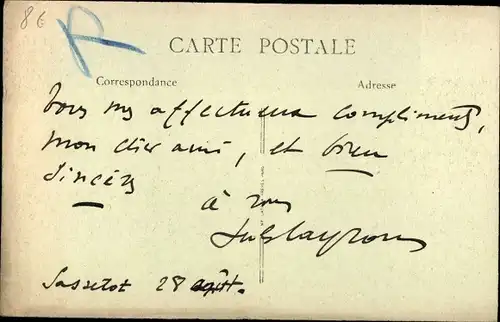 8€
CARTE POSTALE
Correspondance
Adresse
Tous mes affectueux compliments,
mon cher ami, et bien
sincères
à vous
Sassetot 28 août.